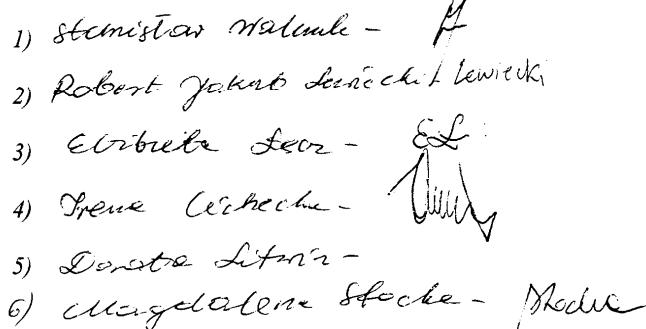 1) Stanisław Walculk -
2) Robert Jakub Lewiecki Lewiecki
3) Elżbieta Łecz - EŁ
4) Irena Cichecka -
5) Dorota Litwin -
6) Magdalena Płocka - Płocka